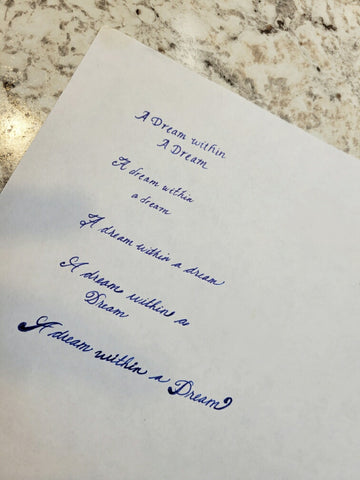 A Dream within
A Dream
A dream within
a dream
A dream within a dream
A dream within a
Dream
A dream within a Dream